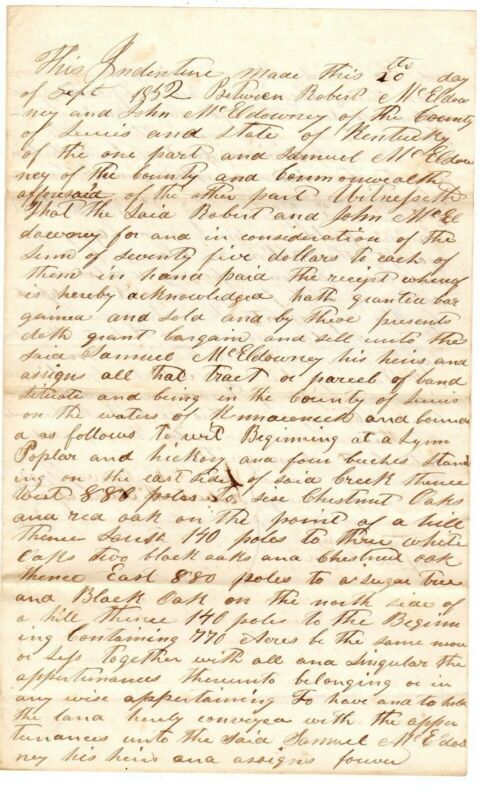 This Indenture made this 20th day
of Sept 1852 Between Robert McEldow
-ney and John McEldowney of the County
of Lewis and State of Kentucky
of the one part and Samuel McEldow
ney of the County and Commonwealth
afforesaid of the other part Witnesseth
That the Said Robert and John McEl
downey for and in consideration of the
Sum of Seventy five dollars to each of
them in hand paid the receipt whereof
is hereby acknowledged hath granted bar
gained and Sold and by these presents
doth grant bargain and sell unto the
Said Samuel McEldowney his heirs and
assigns all that tract or parcel of land
Situate and being in the County of Lewis
on the waters of Kinnaconick and bound
d as follows to wit Beginning at a Lynn
Poplar and hickory and four beeches Stand
ing on the east side of said Creek thence
West 880 poles to Chestnut Oaks
and red oak on the point of a hill
thence South 140 poles to three white
Oaks two black oaks and Chestnut oak
thence East 880 poles to a sugar tree
and Black Oak on the north side of
a hill thence 140 poles to the Beginn
ing Containing 770 Acres be the same more
or less Together with all and Singular the
appertinances thereunto belonging or in
any wise appertaining To have and to hold
the land hereby conveyed with the apper
tinances unto the Said Samuel McEldow
ney his heirs and assigns forever